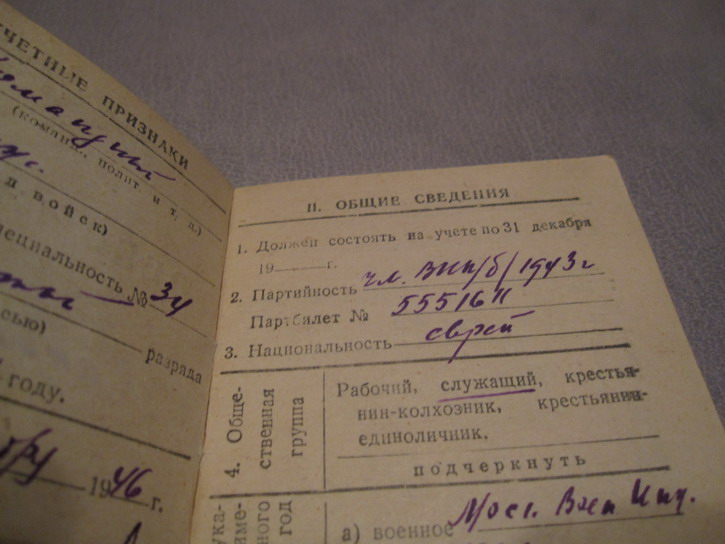 УЧЕТНЫЕ ПРИЗНАКИ
(команд., полит и т. д.)
д войск)
специальность № 34
сью)
разряда
году.
1946 г.
II. ОБЩИЕ СВЕДЕНИЯ
1. Должен состоять на учете по 31 декабря
19 г.
2. Партийность чл. ВКП/б/ 1943 г
Партбилет № 5551611
3. Национальность еврей
4. Обще-
ственная
группа
Рабочий, служащий, крестья-
нин-колхозник, крестьянин-
единоличник.
подчеркнуть
ука-
име-
ного
год
а) военное Моск. Воен Инж.